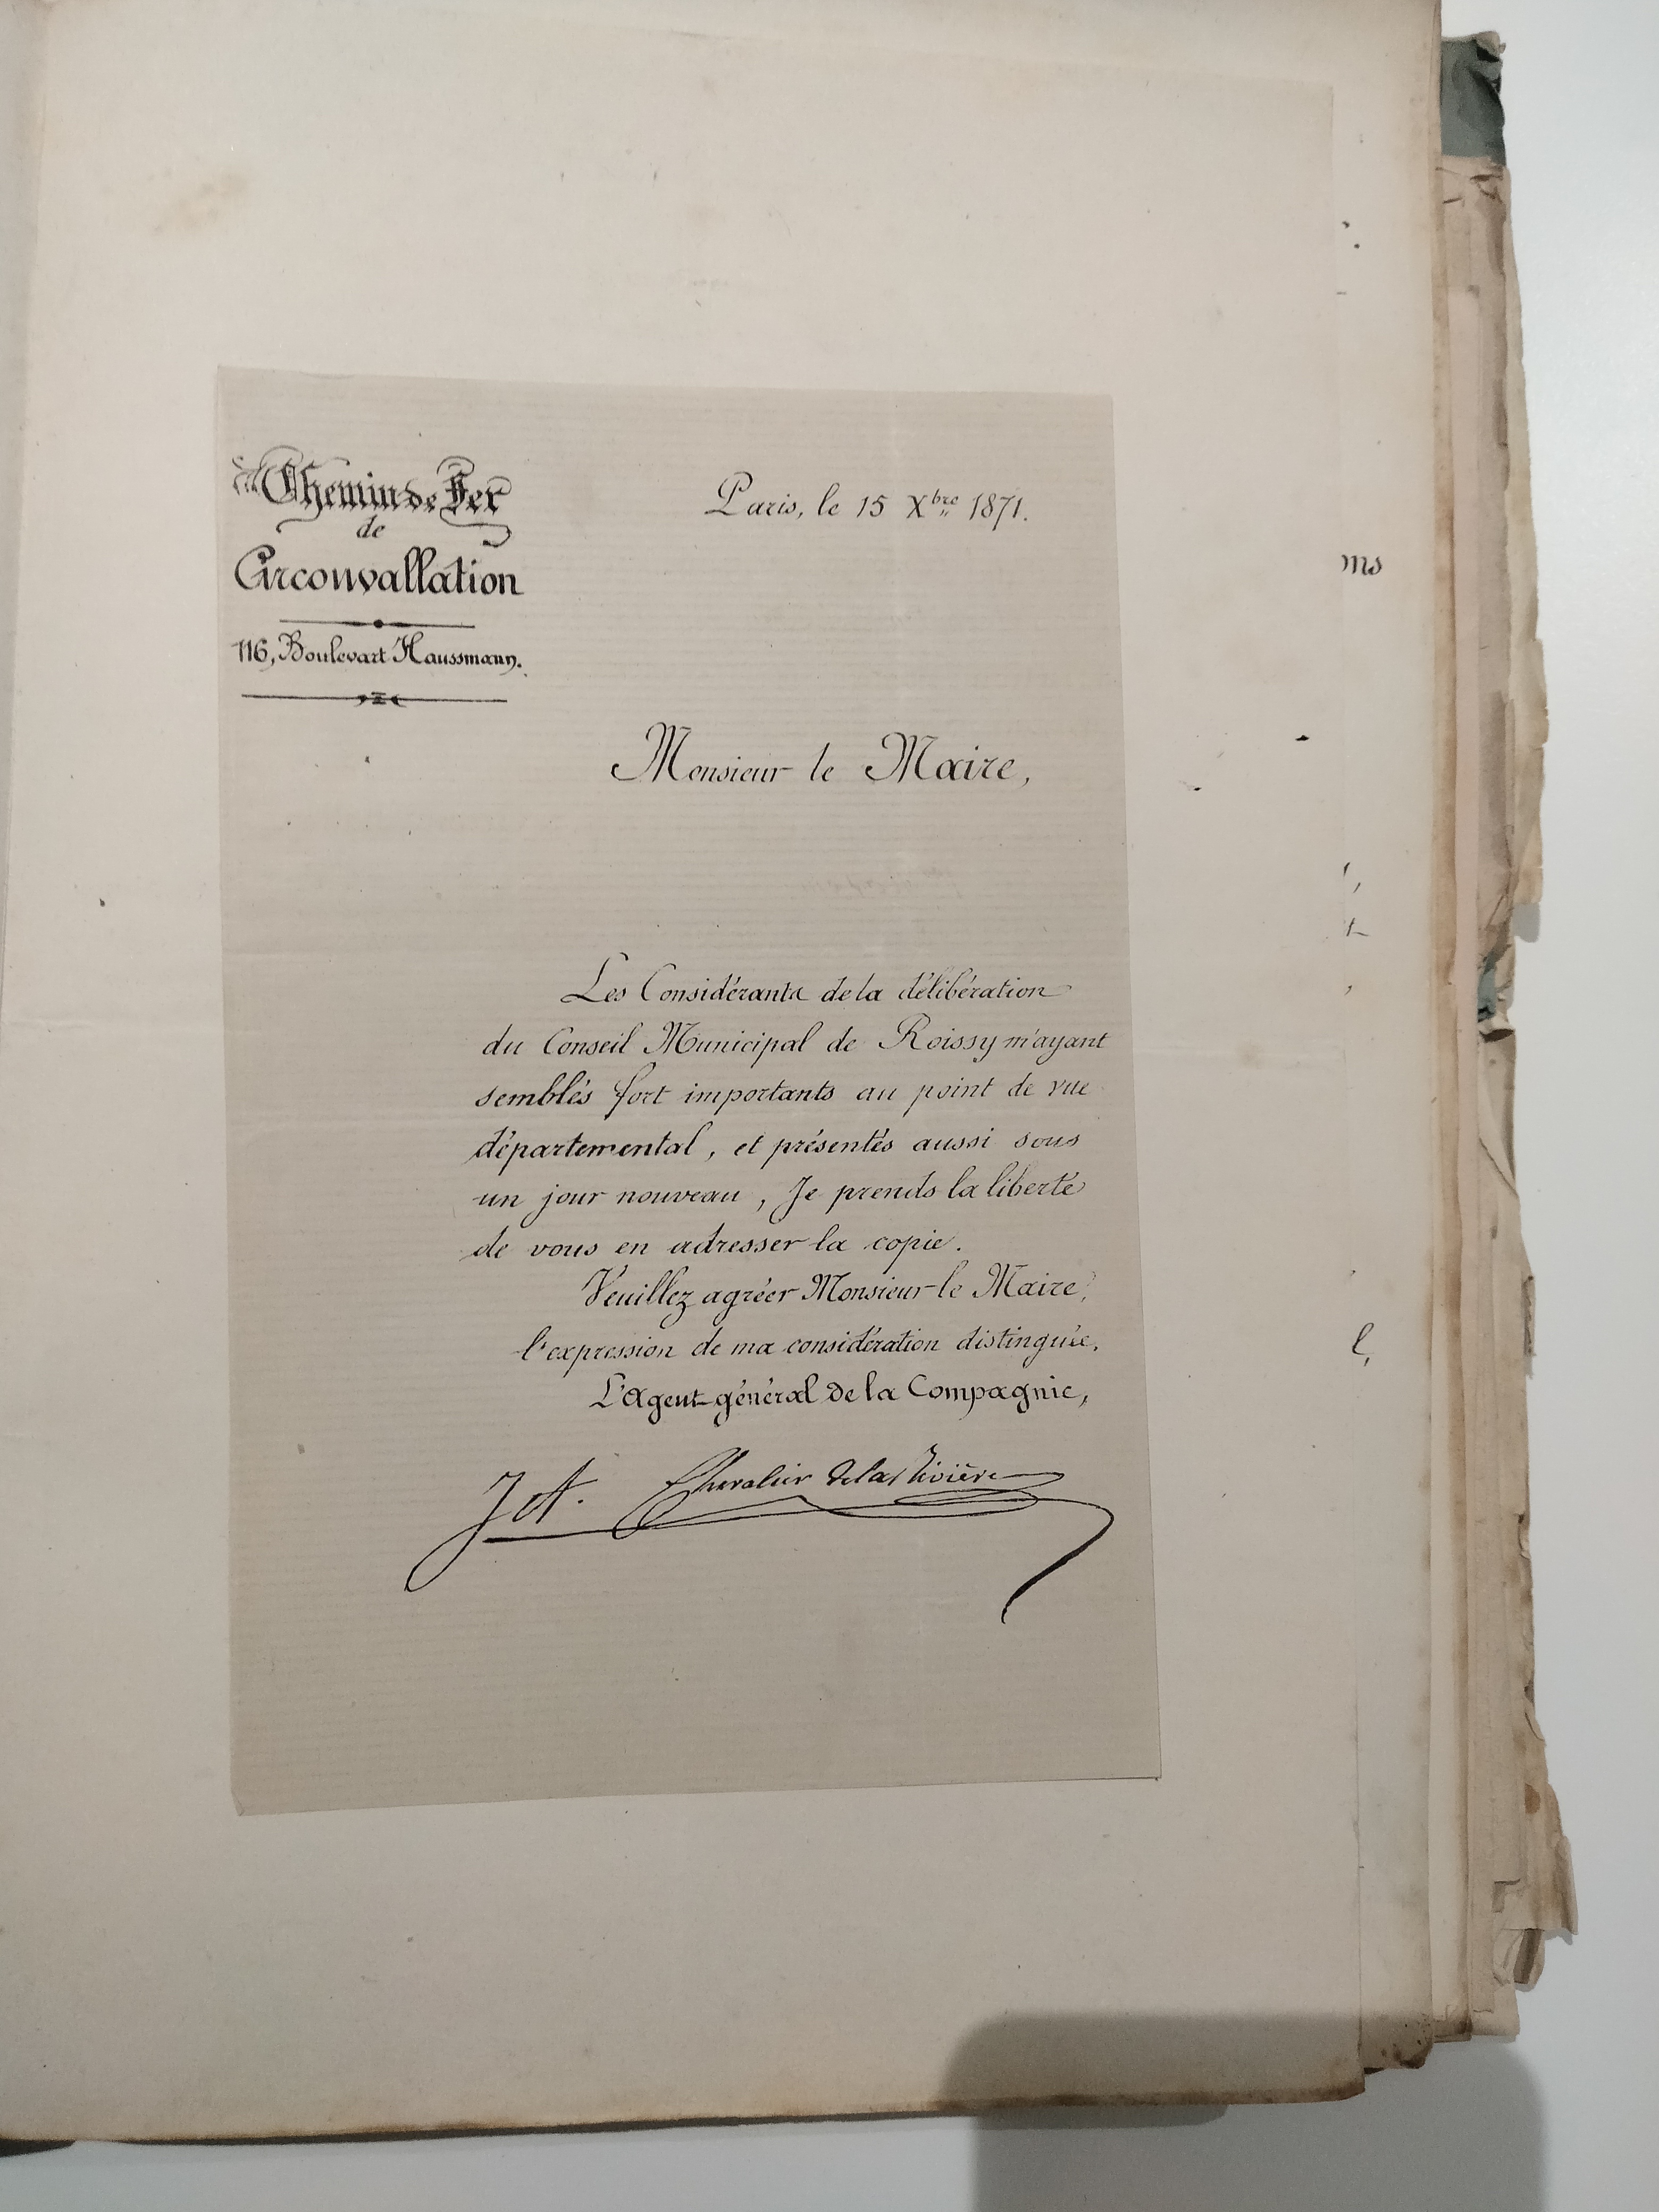 Chemin de Fer
de
Circonvallation
116, Boulevart Haussmann.
Paris, le 15 Xbre 1871.
Monsieur le Maire,
Les Considérants de la délibération
du Conseil Municipal de Roissy m'ayant
semblés fort importants au point de vue
départemental, et présentés aussi sous
un jour nouveau, Je prends la liberté
de vous en adresser la copie.
Veuillez agréer Monsieur le Maire,
l'expression de ma considération distinguée.
L'Agent général de la Compagnie,
J A. Chevalier de la Rivière
ms
t
l,